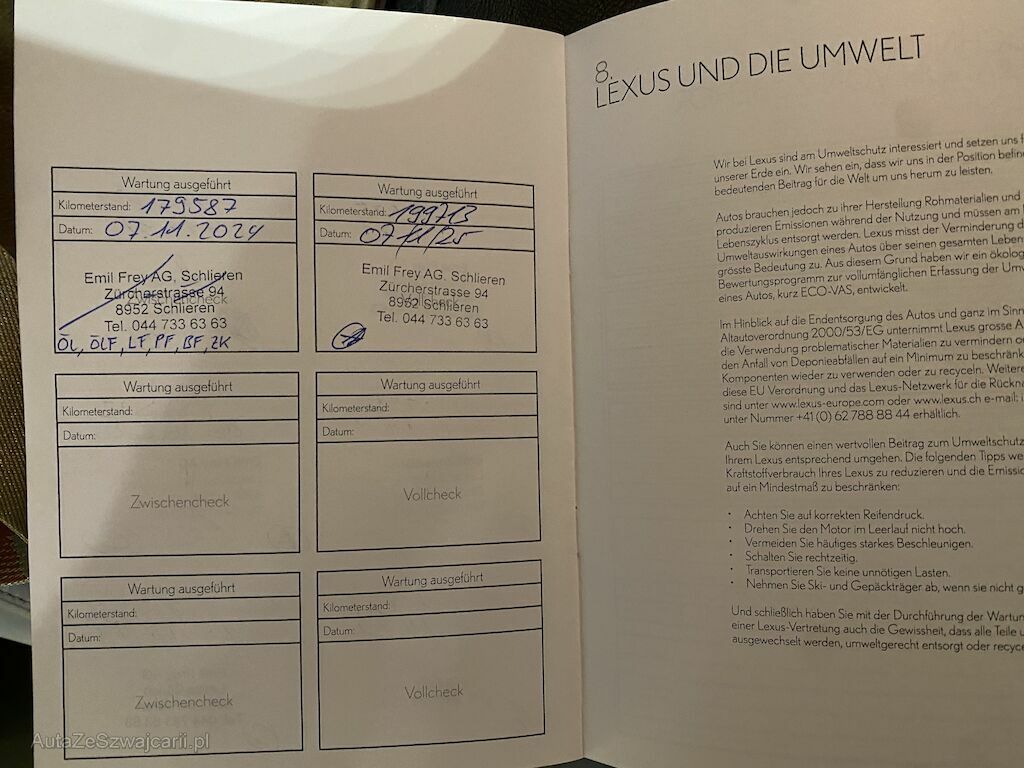 Wartung ausgeführt
Kilometerstand: 179587
Datum: 07.11.2024
Emil Frey AG, Schlieren
Zürcherstrasse 94
Zwischencheck
8952 Schlieren
Tel. 044 733 63 63
ÖL, ÖLF, LF, PF, BF, ZK
Wartung ausgeführt
Kilometerstand: 199713
Datum: 07/11/25
Emil Frey AG, Schlieren
Zürcherstrasse 94
8952 Schlieren
Tel. 044 733 63 63
Wartung ausgeführt
Kilometerstand:
Datum:
Zwischencheck
Wartung ausgeführt
Kilometerstand:
Datum:
Vollcheck
Wartung ausgeführt
Kilometerstand:
Datum:
Zwischencheck
Wartung ausgeführt
Kilometerstand:
Datum:
Vollcheck
AutaZeSzwajcarii.pl
8.
LEXUS UND DIE UMWELT
Wir bei Lexus sind am Umweltschutz interessiert und setzen uns
unserer Erde ein. Wir sehen ein, dass wir uns in der Position
bedeutenden Beitrag für die Welt um uns herum zu leisten.
Autos brauchen jedoch zu ihrer Herstellung Rohmaterialien und
produzieren Emissionen während der Nutzung und müssen am
Lebenszyklus entsorgt werden. Lexus misst der Verminderung
Umweltauswirkungen eines Autos über seinen gesamten
grösste Bedeutung zu. Aus diesem Grund haben wir ein
Bewertungsprogramm zur vollumfänglichen Erfassung der
eines Autos, kurz ECO-VAS, entwickelt.
Im Hinblick auf die Endentsorgung des Autos und ganz im
Altautoverordnung 2000/53/EG unternimmt Lexus grosse
die Verwendung problematischer Materialien zu vermindern
den Anfall von Deponieabfällen auf ein Minimum zu
Komponenten wieder zu verwenden oder zu recyceln.
diese EU Verordnung und das Lexus-Netzwerk für die
sind unter www.lexus-europe.com oder www.lexus.ch e-mail:
unter Nummer +41 (0) 62 788 88 44 erhältlich.
Auch Sie können einen wertvollen Beitrag zum Umweltschutz
Ihrem Lexus entsprechend umgehen. Die folgenden Tipps
Kraftstoffverbrauch Ihres Lexus zu reduzieren und die
auf ein Mindestmaß zu beschränken:
• Achten Sie auf korrekten Reifendruck.
• Drehen Sie den Motor im Leerlauf nicht hoch.
• Vermeiden Sie häufiges starkes Beschleunigen.
• Schalten Sie rechtzeitig.
• Transportieren Sie keine unnötigen Lasten.
• Nehmen Sie Ski- und Gepäckträger ab, wenn sie nicht
Und schließlich haben Sie mit der Durchführung der
einer Lexus-Vertretung auch die Gewissheit, dass alle Teile
ausgewechselt werden, umweltgerecht entsorgt oder